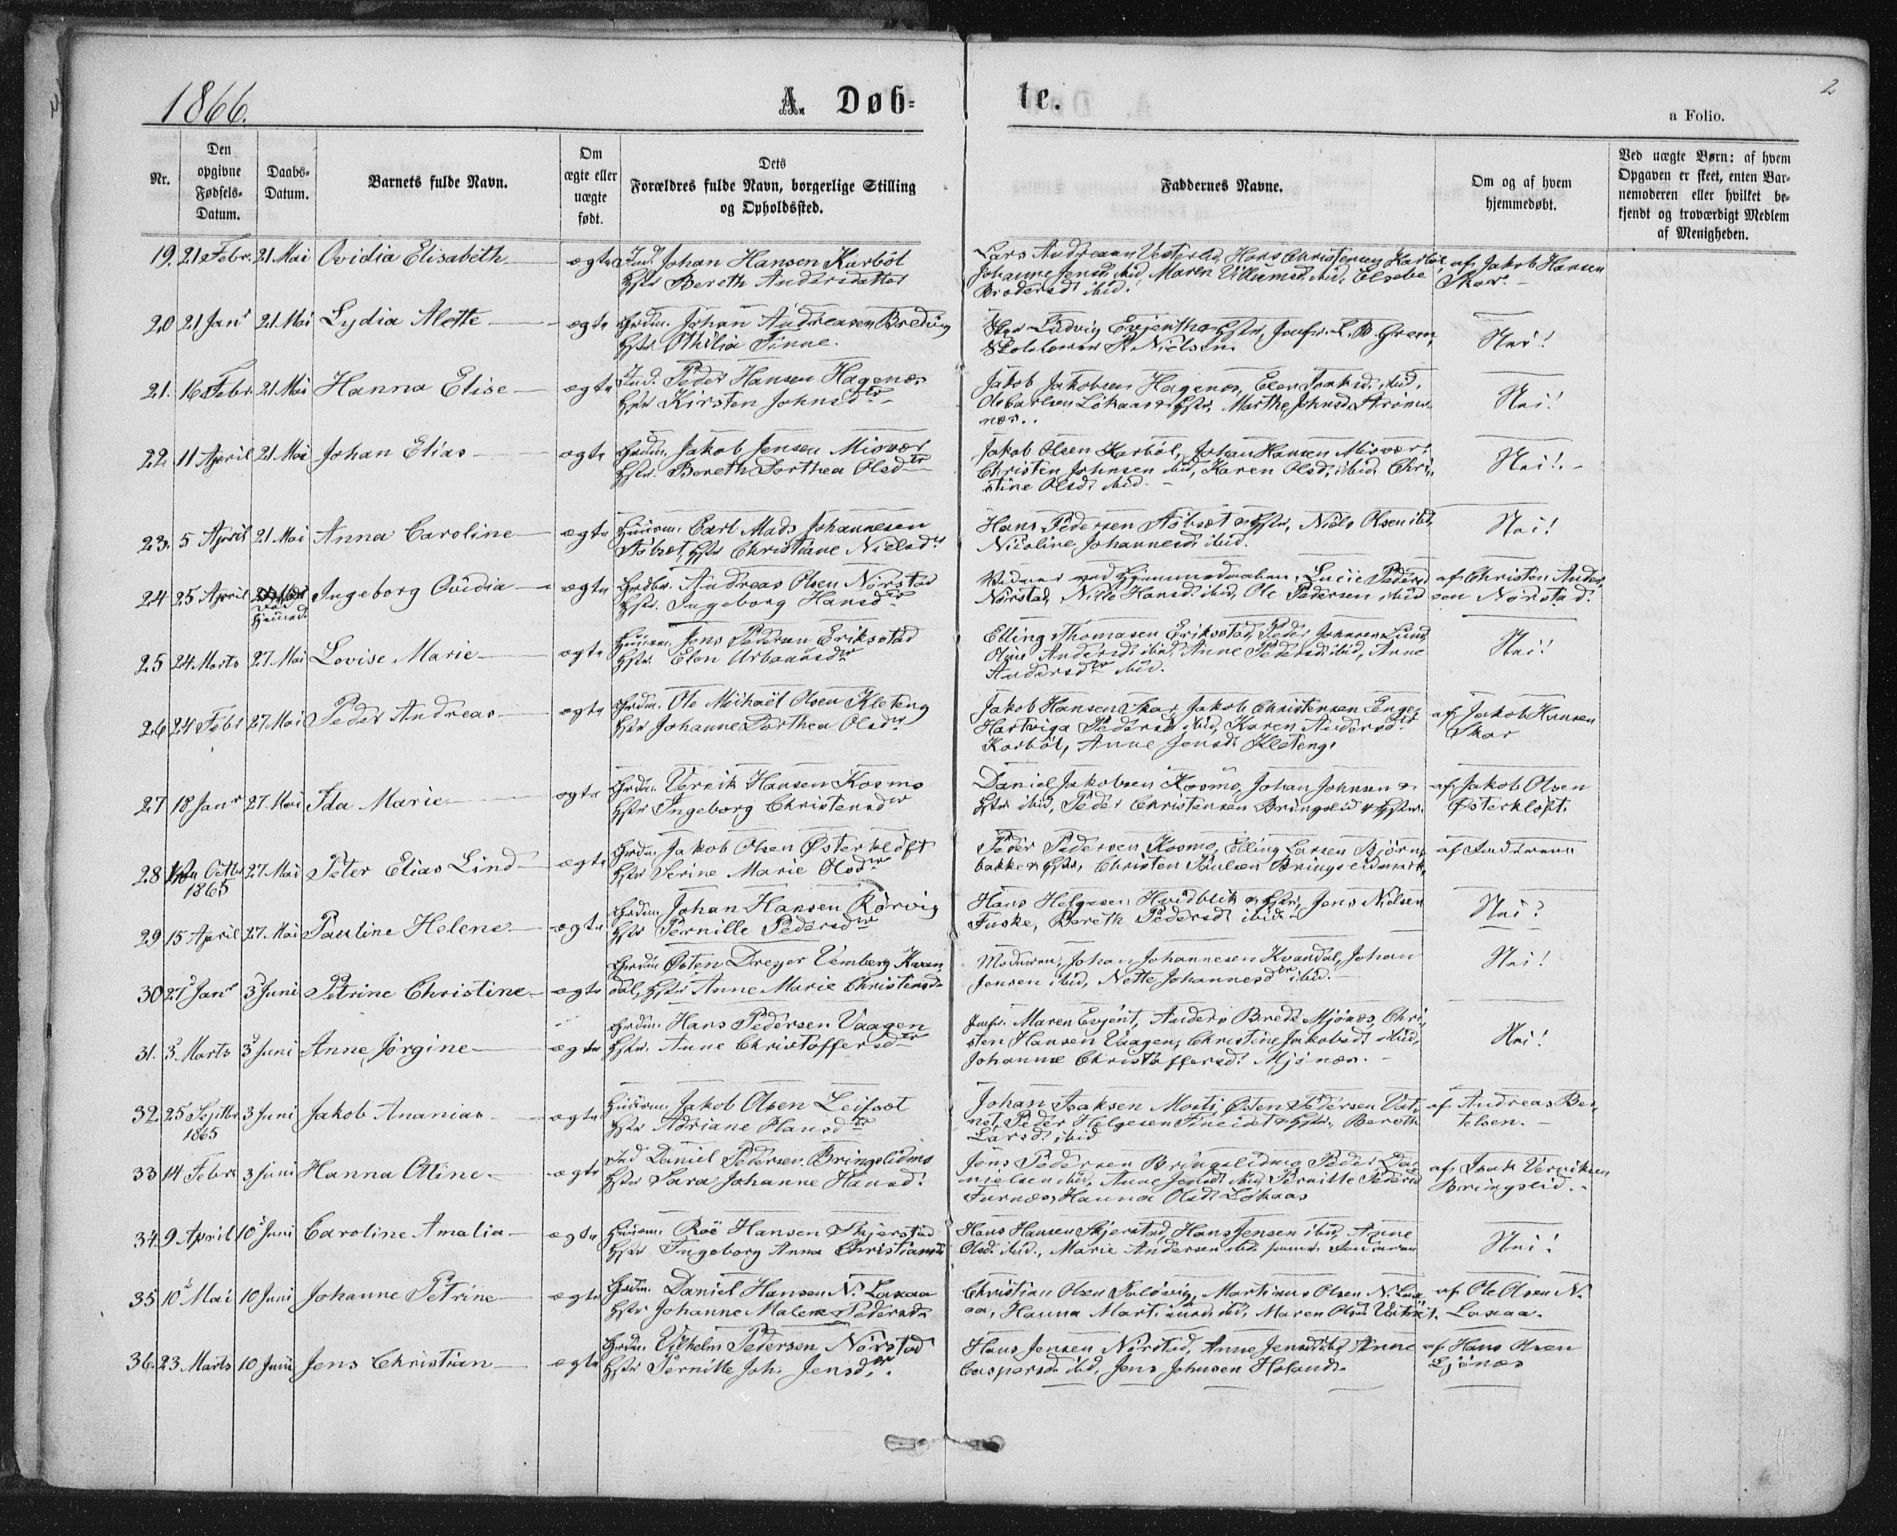 1866.
A. Døb-
te.
2
a Folio.
Nr.
Den opgivne Fødsels-Datum.
Daabs-Datum.
Barnets fulde Navn.
Om ægte eller uægte født.
Dets Forældres fulde Navn, borgerlige Stilling og Opholdssted.
Faddernes Navne.
Om og af hvem hjemmedøbt.
Ved uægte Børn: af hvem Opgaven er skeet, enten Barnemoderen eller hvilket bekjendt og troværdigt Medlem af Menigheden.
19. 21 Febr. 21 Mai Ovidia Elisabeth ægte Ind. Johan Hansen Karbøl
Hstr Bereth Andersdatter
Johanne Jensd. ibid, Maren Villumsd. ibid, Elsebe
Brodersd. ibid.
af Jakob Hansen
Skar.
20 21 Janr 21 Mai Lydia Alette ægte Grdm. Johan Andreasen Breding
Hstr. Othilia Finne.
Nei!
21. 16 Febr 21 Mai Hanna Elise ægte Ind. Peder Hansen Hagenæs
Hstr Kirsten Johnsdtr
Jakob Jakobsen Hagenæs, Elen Isaksd. ibid,
Ole Carlsen Løkaas & Hstr, Marthe Johnsd. Strøm-
næs.
Nei!
22. 11 April 21 Mai Johan Elias ægte Grdm. Jakob Jensen Misvær
Hstr. Bereth Dorthea Olsdtr
Jakob Olsen Karbøl, Johan Hansen Misvær,
Christen Johnsen ibid, Karen Olsd. ibid, Chri-
stine Olsd. ibid.
Nei!
23. 5 April 21 Mai Anna Caroline ægte Huusm. Carl Mads Johannesen
Aabset, Hstr Christiane Nielsdr
Hans Pedersen Aabset & Hstr, Niels Olsen ibd,
Nicoline Johannesd. ibid.
Nei!
24 25 April Ingeborg Ovidia ægte Grdbr. Andreas Olsen Nørstad
Hstr. Ingeborg Hansdtr
Vidner ved Hjemmedaaben: Lucie Pedersd
Nørstad, Nille Hansd. ibid, Ole Pedersen ibid
af Christen Ander-
sen Nørstad.
25 24 Marts 27 Mai Lovise Marie ægte Huusm. Jens Pedersen Eriksstad
Hstr. Elen Urbaansdtr
Elling Thomasen Eriksstad, Peder Johnsen Lund
Oline Andersd. ibid, Anne Pedersd. ibid, Anne
Andersdtr ibid.
Nei!
26 24 Febr 27 Mai Peder Andreas ægte Grdm. Ole Michael Olsen Kleteng
Hstr Johanne Dorthea Olsdr
Jakob Hansen Skar, Jakob Christensen Enge,
Hartviga Pedersd. ibid, Karen Andersdtr
Karbøl, Anne Jensd. Kleteng.
af Jakob Hansen
Skar
27 18 Janr 27 Mai Ida Marie ægte Grdm. Vernik Hansen Kosmo
Hstr Ingeborg Christensdtr
Daniel Jakobsen Kosmo, Johan Johnsen &
Hstr ibid, Peder Christensen Bringslid & Hstr.
af Jakob Olsen
Østerkløft.
28 Octbr 1865 27 Mai Peter Elias Lind ægte Grdm. Jakob Olsen Østerkløft
Hstr Serine Marie Olsdr
Peder Pedersen Kosmo, Elling Larsen Bjørn-
bakke & Hstr, Christen Paulsen Bringslidmark,
af Faderen
29 15 April 27. Mai Pauline Helene ægte Grdm. Johan Hansen Rørvig
Hstr Pernille Pedersdtr
Hans Helgesen Hvidblik & Hstr, Jens Nielsen
Fuske, Bereth Pedersd. ibid.
Nei!
30 27 Janr 3 Juni Petrine Christine ægte Grdm Østen Dreyer Vemberg Kvan-
dal, Hstr Anne Marie Christensd.
Moderen, Johan Johannesen Kvandal, Johan
Jensen ibid, Nette Johannesdtr ibid.
Nei!
31. 3. Marts 3 Juni Anne Jørgine ægte Grdm. Hans Pedersen Vaagen
Hstr. Anne Christoffersdtr
Jomfr. Maren Evjent, Anders Brede Mjønes, Chri-
sten Hansen Vaagen, Christine Jakobsd. ibid,
Johanne Christoffersd. Mjønes.
Nei!
32. 25 Septbr 1865 3 Juni Jakob Ananias ægte Huusm. Jakob Olsen Leifset
Hstr Adriane Hansdtr
Johan Isaksen Mosti, Østen Pedersen Vat-
ne, Peder Helgesen Fineidet & Hstr, Bereth
Larsd. ibid
af Andreas Ber-
telsen.
33 14 Febr. 3 Juni Hanna Oline ægte Ind Daniel Pedersen Bringslidmo
Hstr Sara Johanne Hansd.
Jens Pedersen Bringslidmo, Peder Da-
nielsen ibid, Anne Jensd. ibid, Pernille Pedersd
Furnes, Hanna Olsd. Løkaas
af Isak Verniksen
Bringslid.
34. 9 April 10 Juni Caroline Amalia ægte Huusm. Roe Hansen Skjerstad
Hstr Ingeborg Anna Christiansd
Hans Hansen Skjerstad, Hans Jensen ibid, Anne
Olsd. ibid., Marie Andersen ibid
Nei!
35 10 Mai 10 Juni Johanne Petrine ægte Grdm. Daniel Hansen N. Laxaa
Hstr Johanne Malene Pedersd.
Christian Olsen Soløvig, Martinus Olsen N. Lax-
aa, Hanna Martinusd. ibid, Maren Olsd.
af Ole Olsen N.
Laxaa.
36. 23. Marts 10 Juni Jens Christian ægte Grdm. Vilhelm Petersen Nørstad
Hstr Pernille Joh. Jensdtr.
Hans Jensen Nørstad, Anne Jensd. ibid, Anne
Caspersd. ibid, Jens Johnsen Holand.
af Hans Olsen
Ljønæs